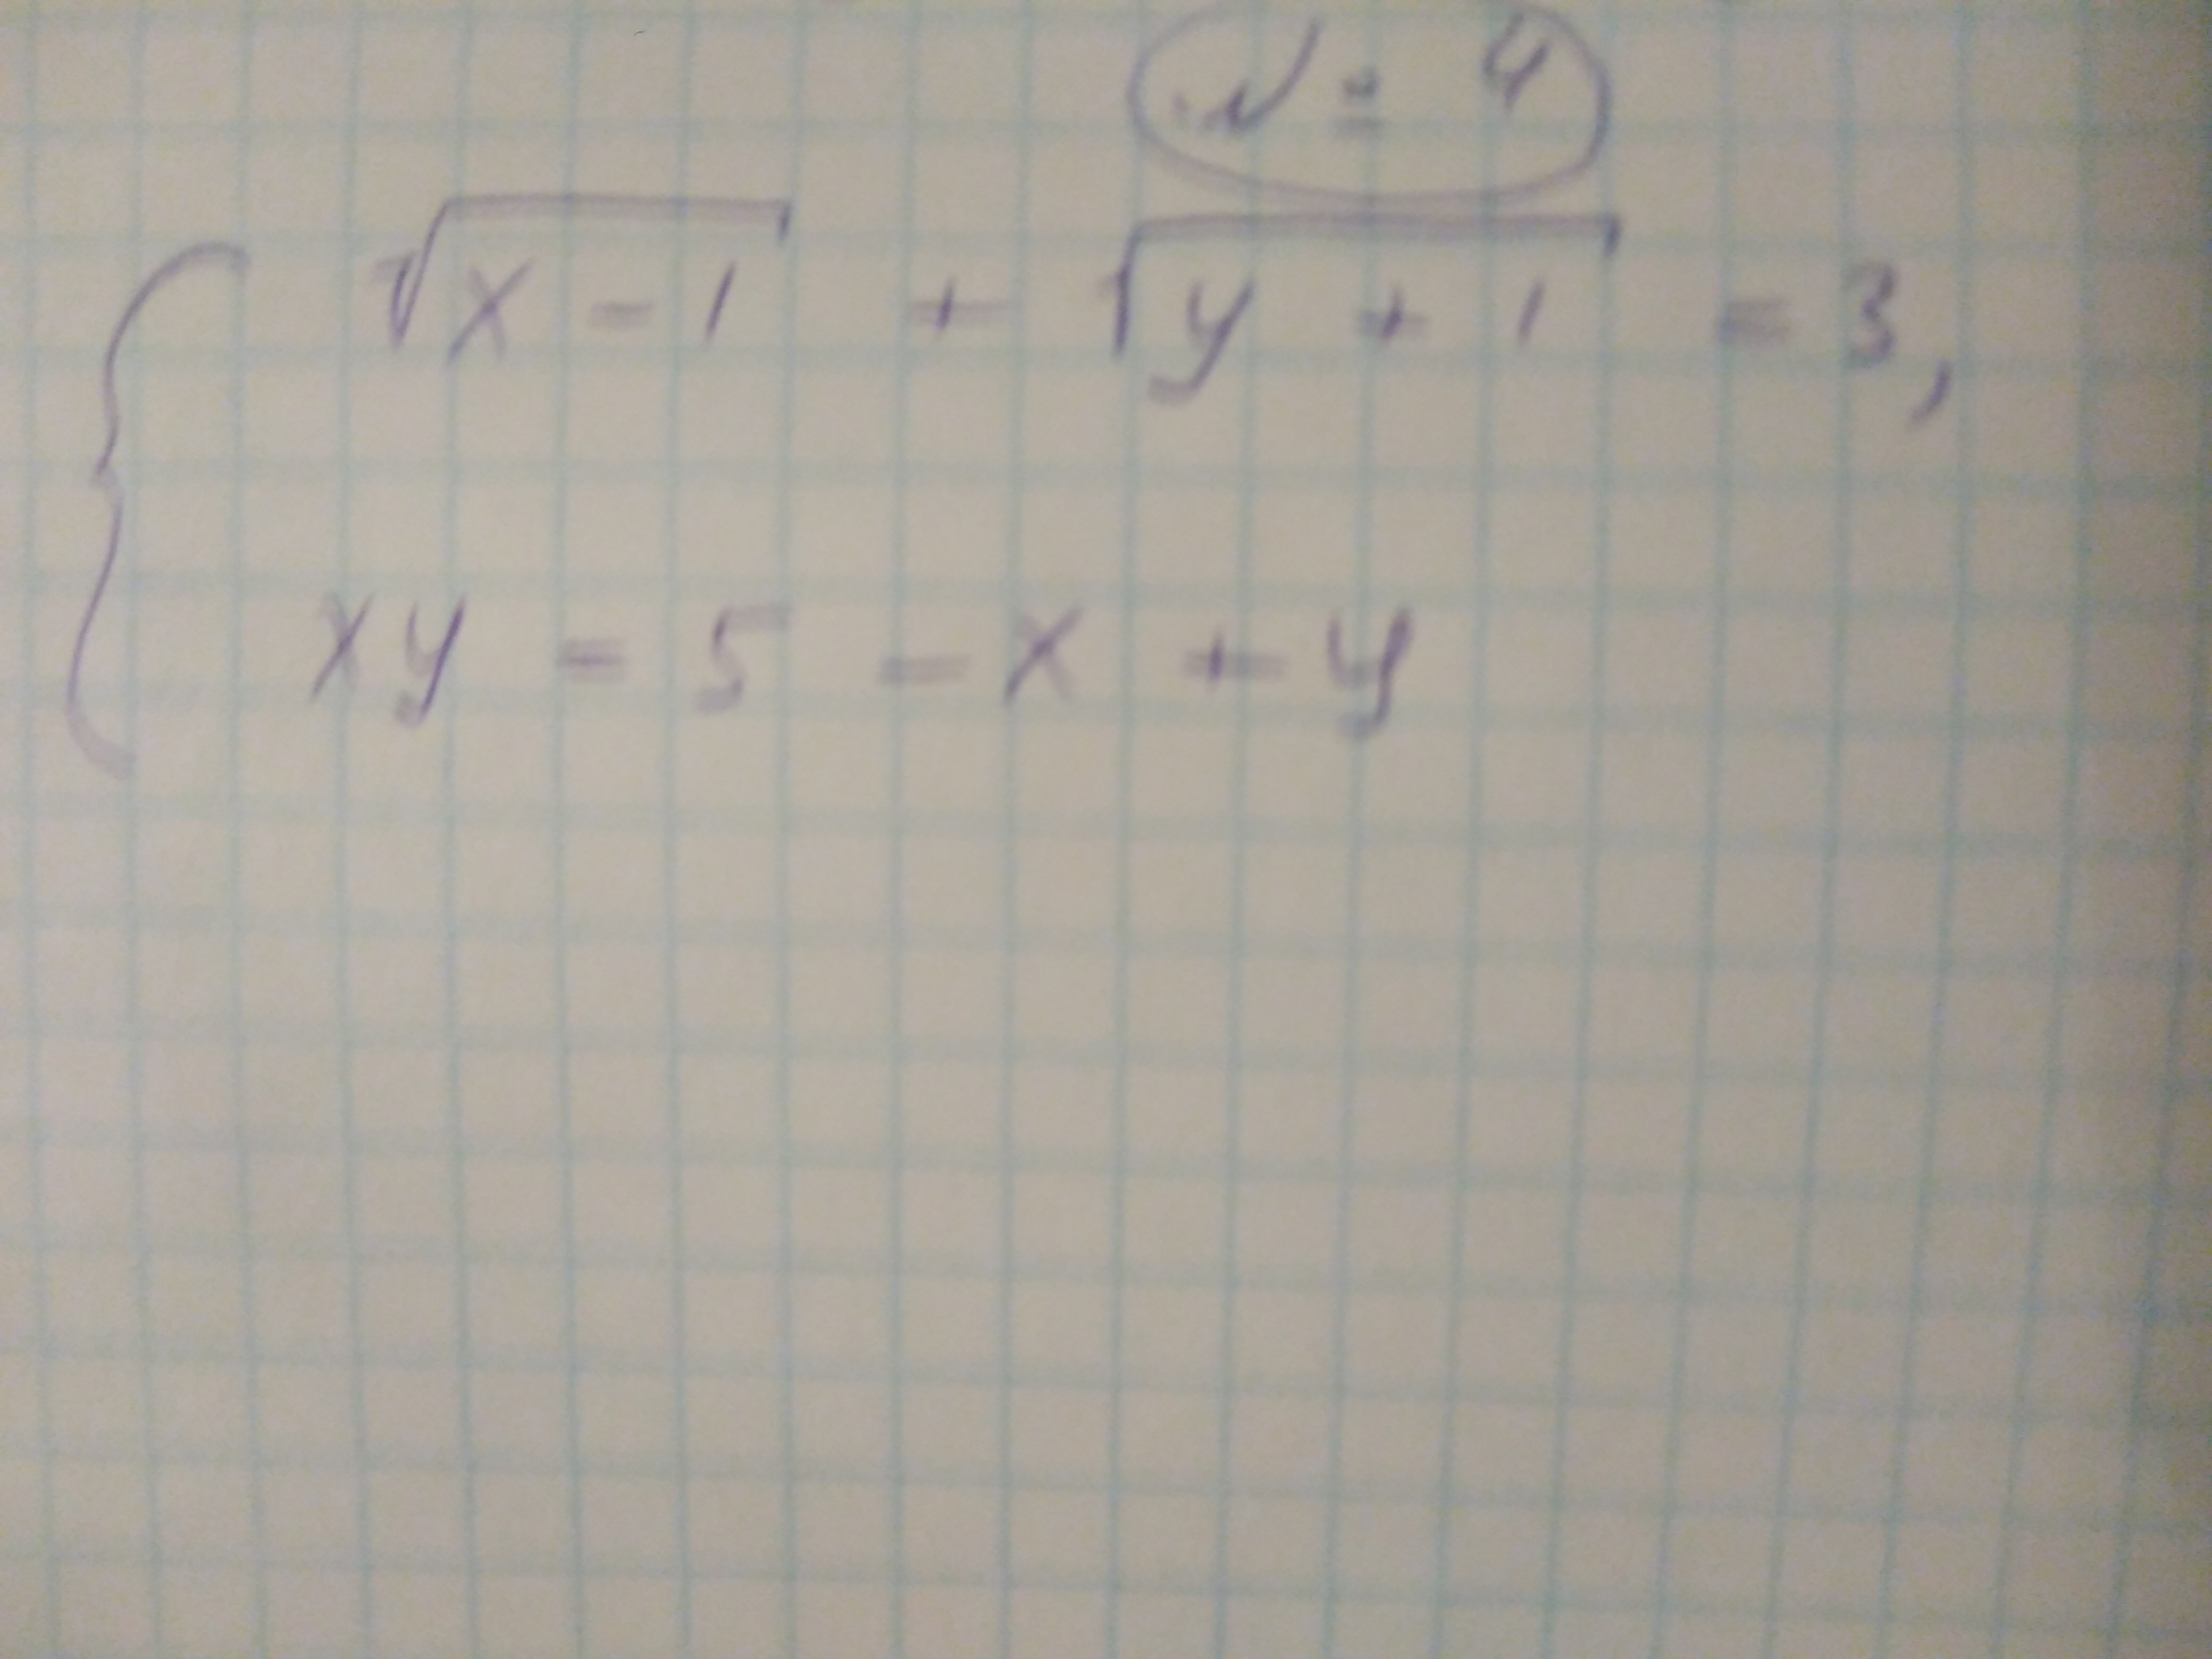 № 4
√(x - 1) + √(y + 1) = 3,
xy = 5 - x + y